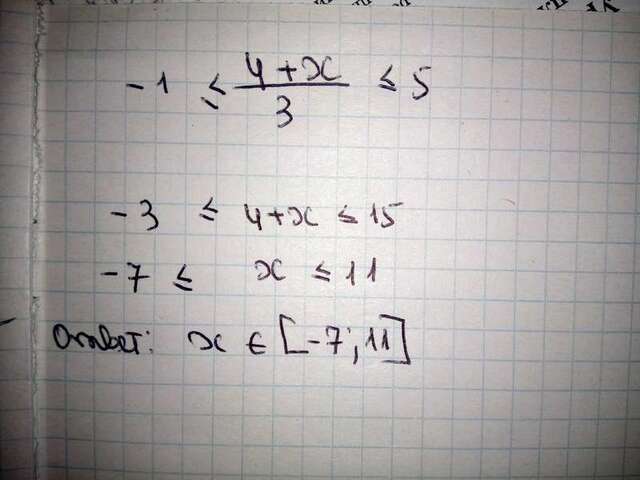 -1 ≤ (4+x)/3 ≤ 5
-3 ≤ 4+x ≤ 15
-7 ≤ x ≤ 11
Ответ: x ∈ [-7; 11]